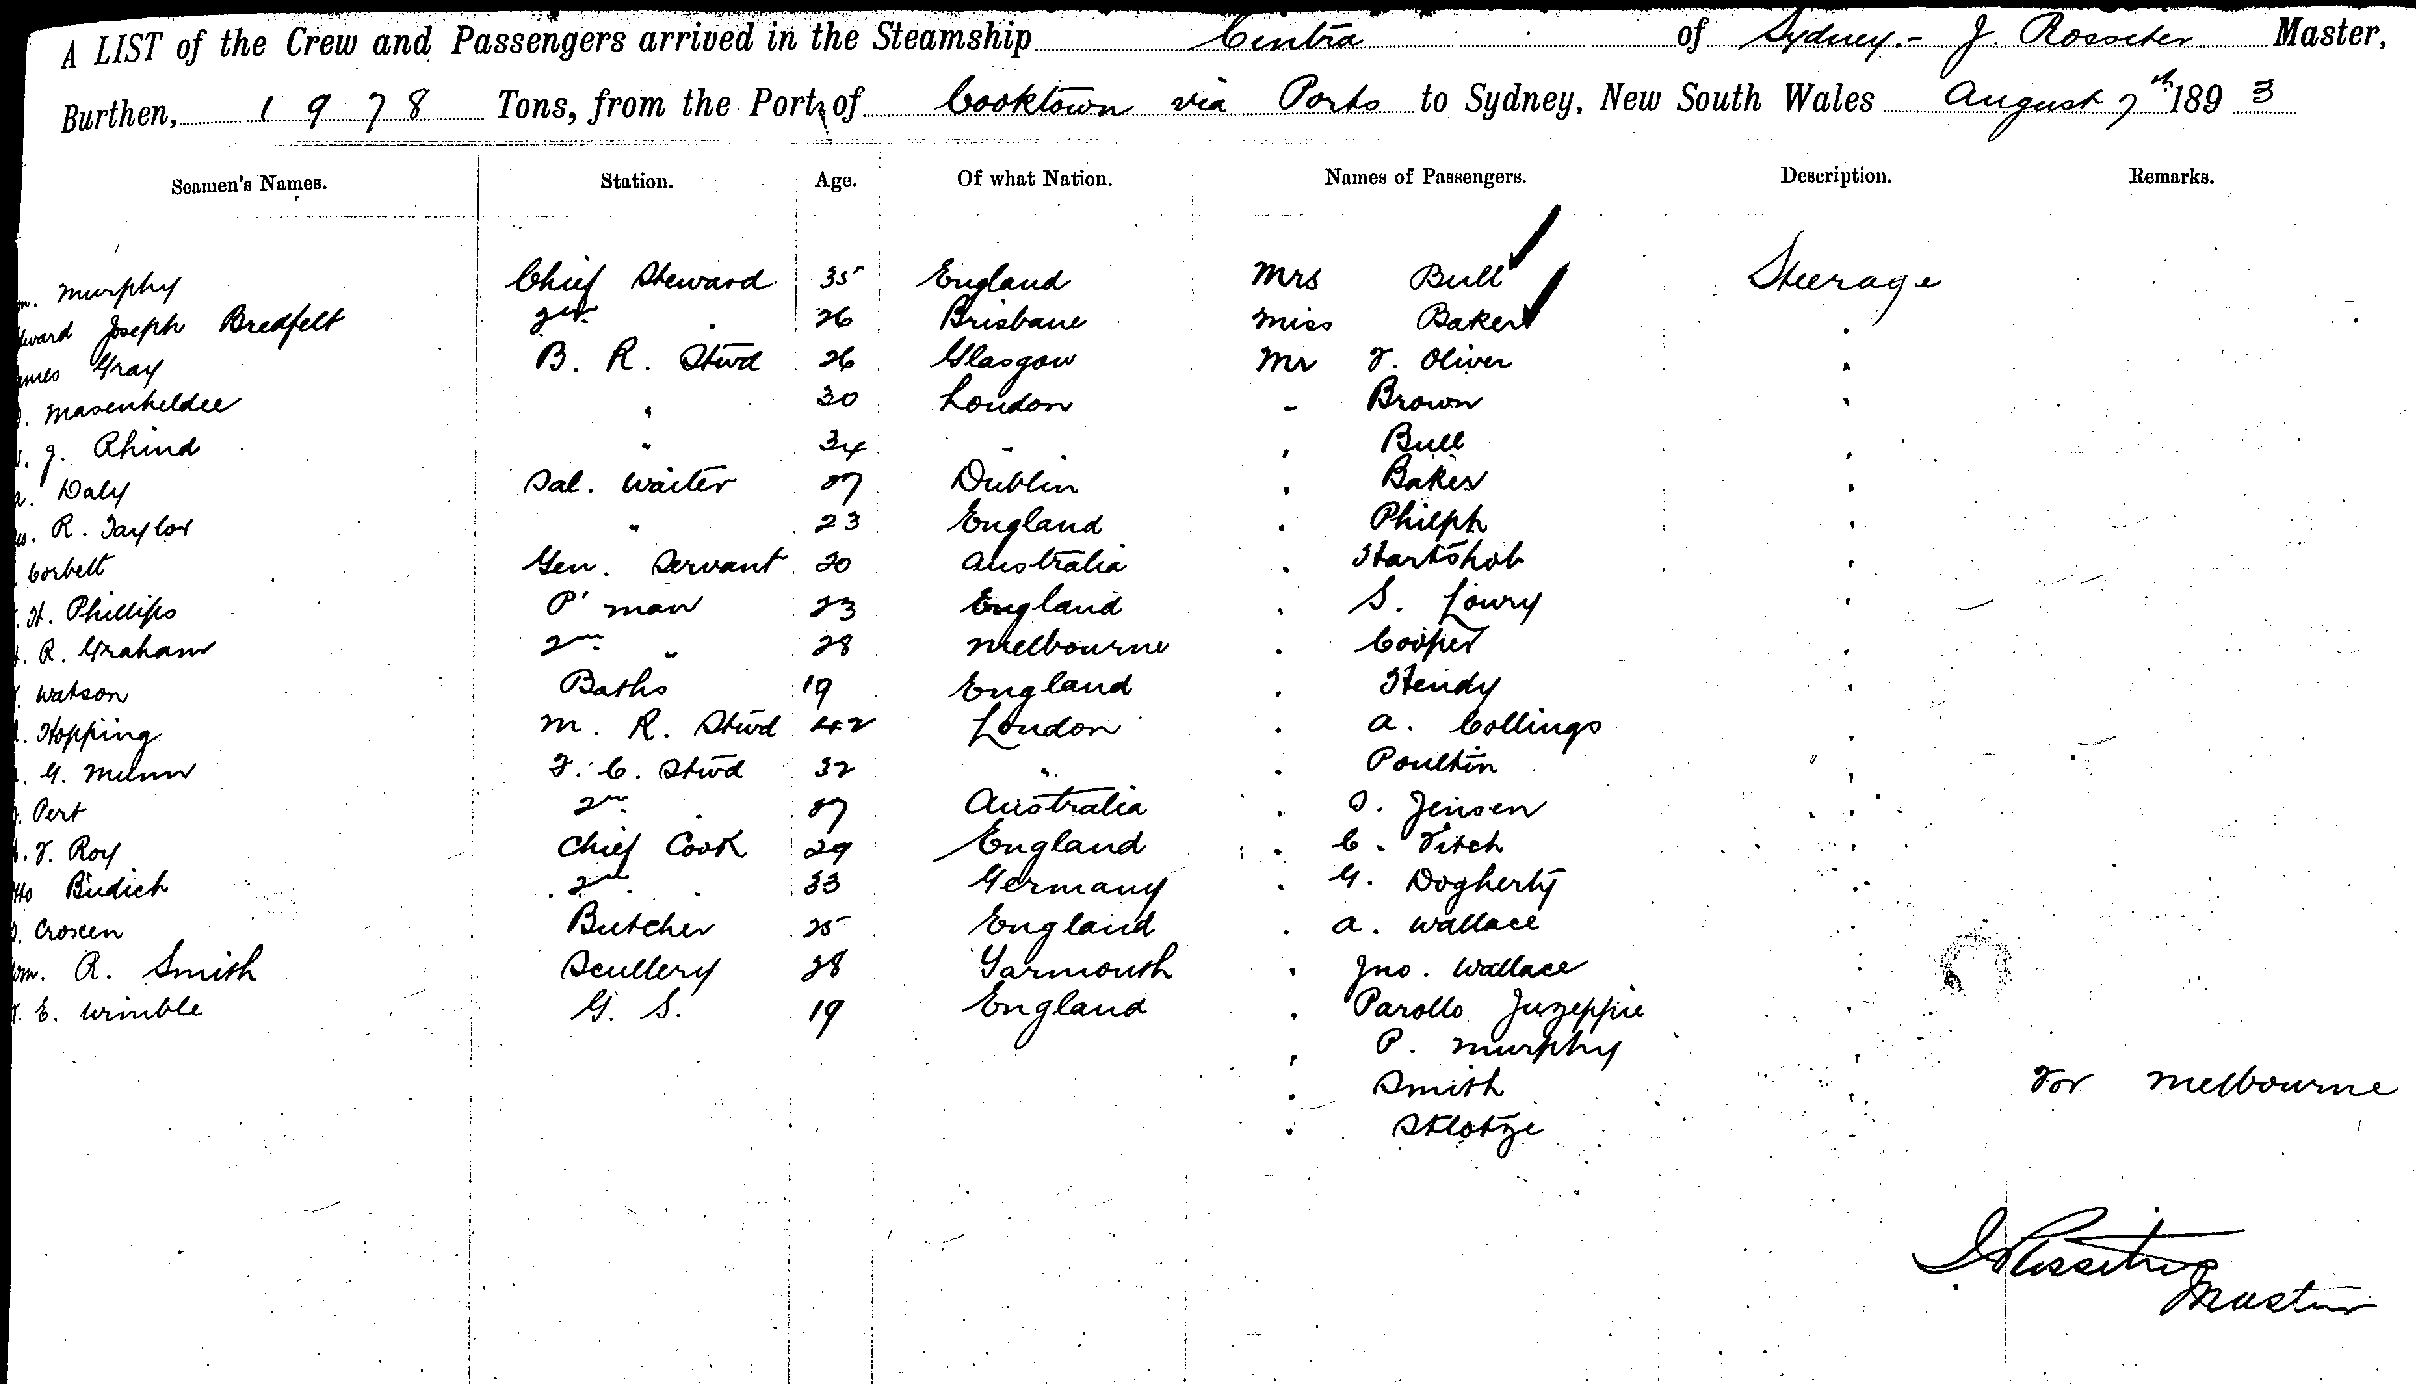 A LIST of the Crew and Passengers arrived in the Steamship Cintra of Sydney.- J. Rossiter Master,
Burthen, 1978 Tons, from the Port of Cooktown via Ports to Sydney, New South Wales August 7th 1893
Seamen's Names. Station. Age. Of what Nation. Names of Passengers. Description. Remarks.
Murphy Chief Steward 35 England Mrs Bull Steerage
Joseph Bredfelt 2nd " 26 Brisbane Miss Baker "
Gray B. R. Stwd 26 Glasgow Mr F. Oliver "
Masenheldee " 30 London " Brown "
J. Rhind " 34 " " Bull "
Daly Sal. Waiter 27 Dublin " Baker "
R. Taylor " 23 England " Philph "
Corbett Gen. Servant 20 Australia " Hartshob "
H. Phillips P' man 23 England " S. Lowry "
R. Graham 2nd " 28 Melbourne " Cooper "
Watson Baths 19 England " Hendy "
Hopping M. R. Stwd 42 London " A. Collings "
G. Munn F. C. Stwd 32 " " Poultin "
Pert 2nd " 27 Australia " O. Jensen "
F. Roy Chief Cook 29 England " C. Fitch "
Budich 2nd " 33 Germany " G. Dogherty "
Croseen Butcher 25 England " A. Wallace "
Wm. R. Smith Scullery 28 Yarmouth " Jno. Wallace "
E. Wimble G. S. 19 England " Parollo Juzeppie
" P. Murphy "
" Smith " For Melbourne
" Sklotze
J Rossiter
Master